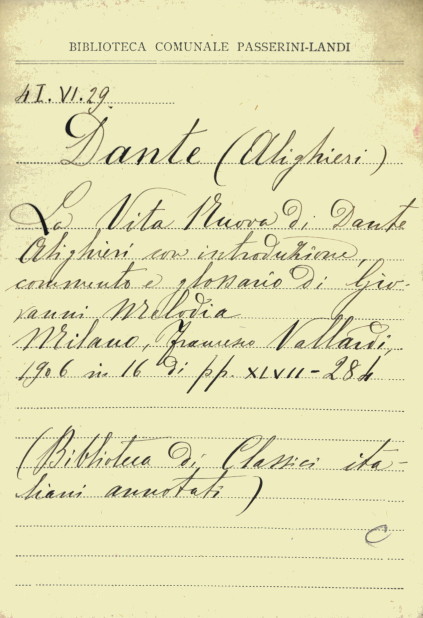 BIBLIOTECA COMUNALE PASSERINI-LANDI
4 I. VI. 29.
Dante (Alighieri)
La Vita Nuova di Dante
Alighieri con introduzione,
commento e glossario di Gio-
vanni Melodia
Milano, Francesco Vallardi,
1906 in 16 di pp. XLVII - 284
(Biblioteca di Classici ita-
liani annotati)
C